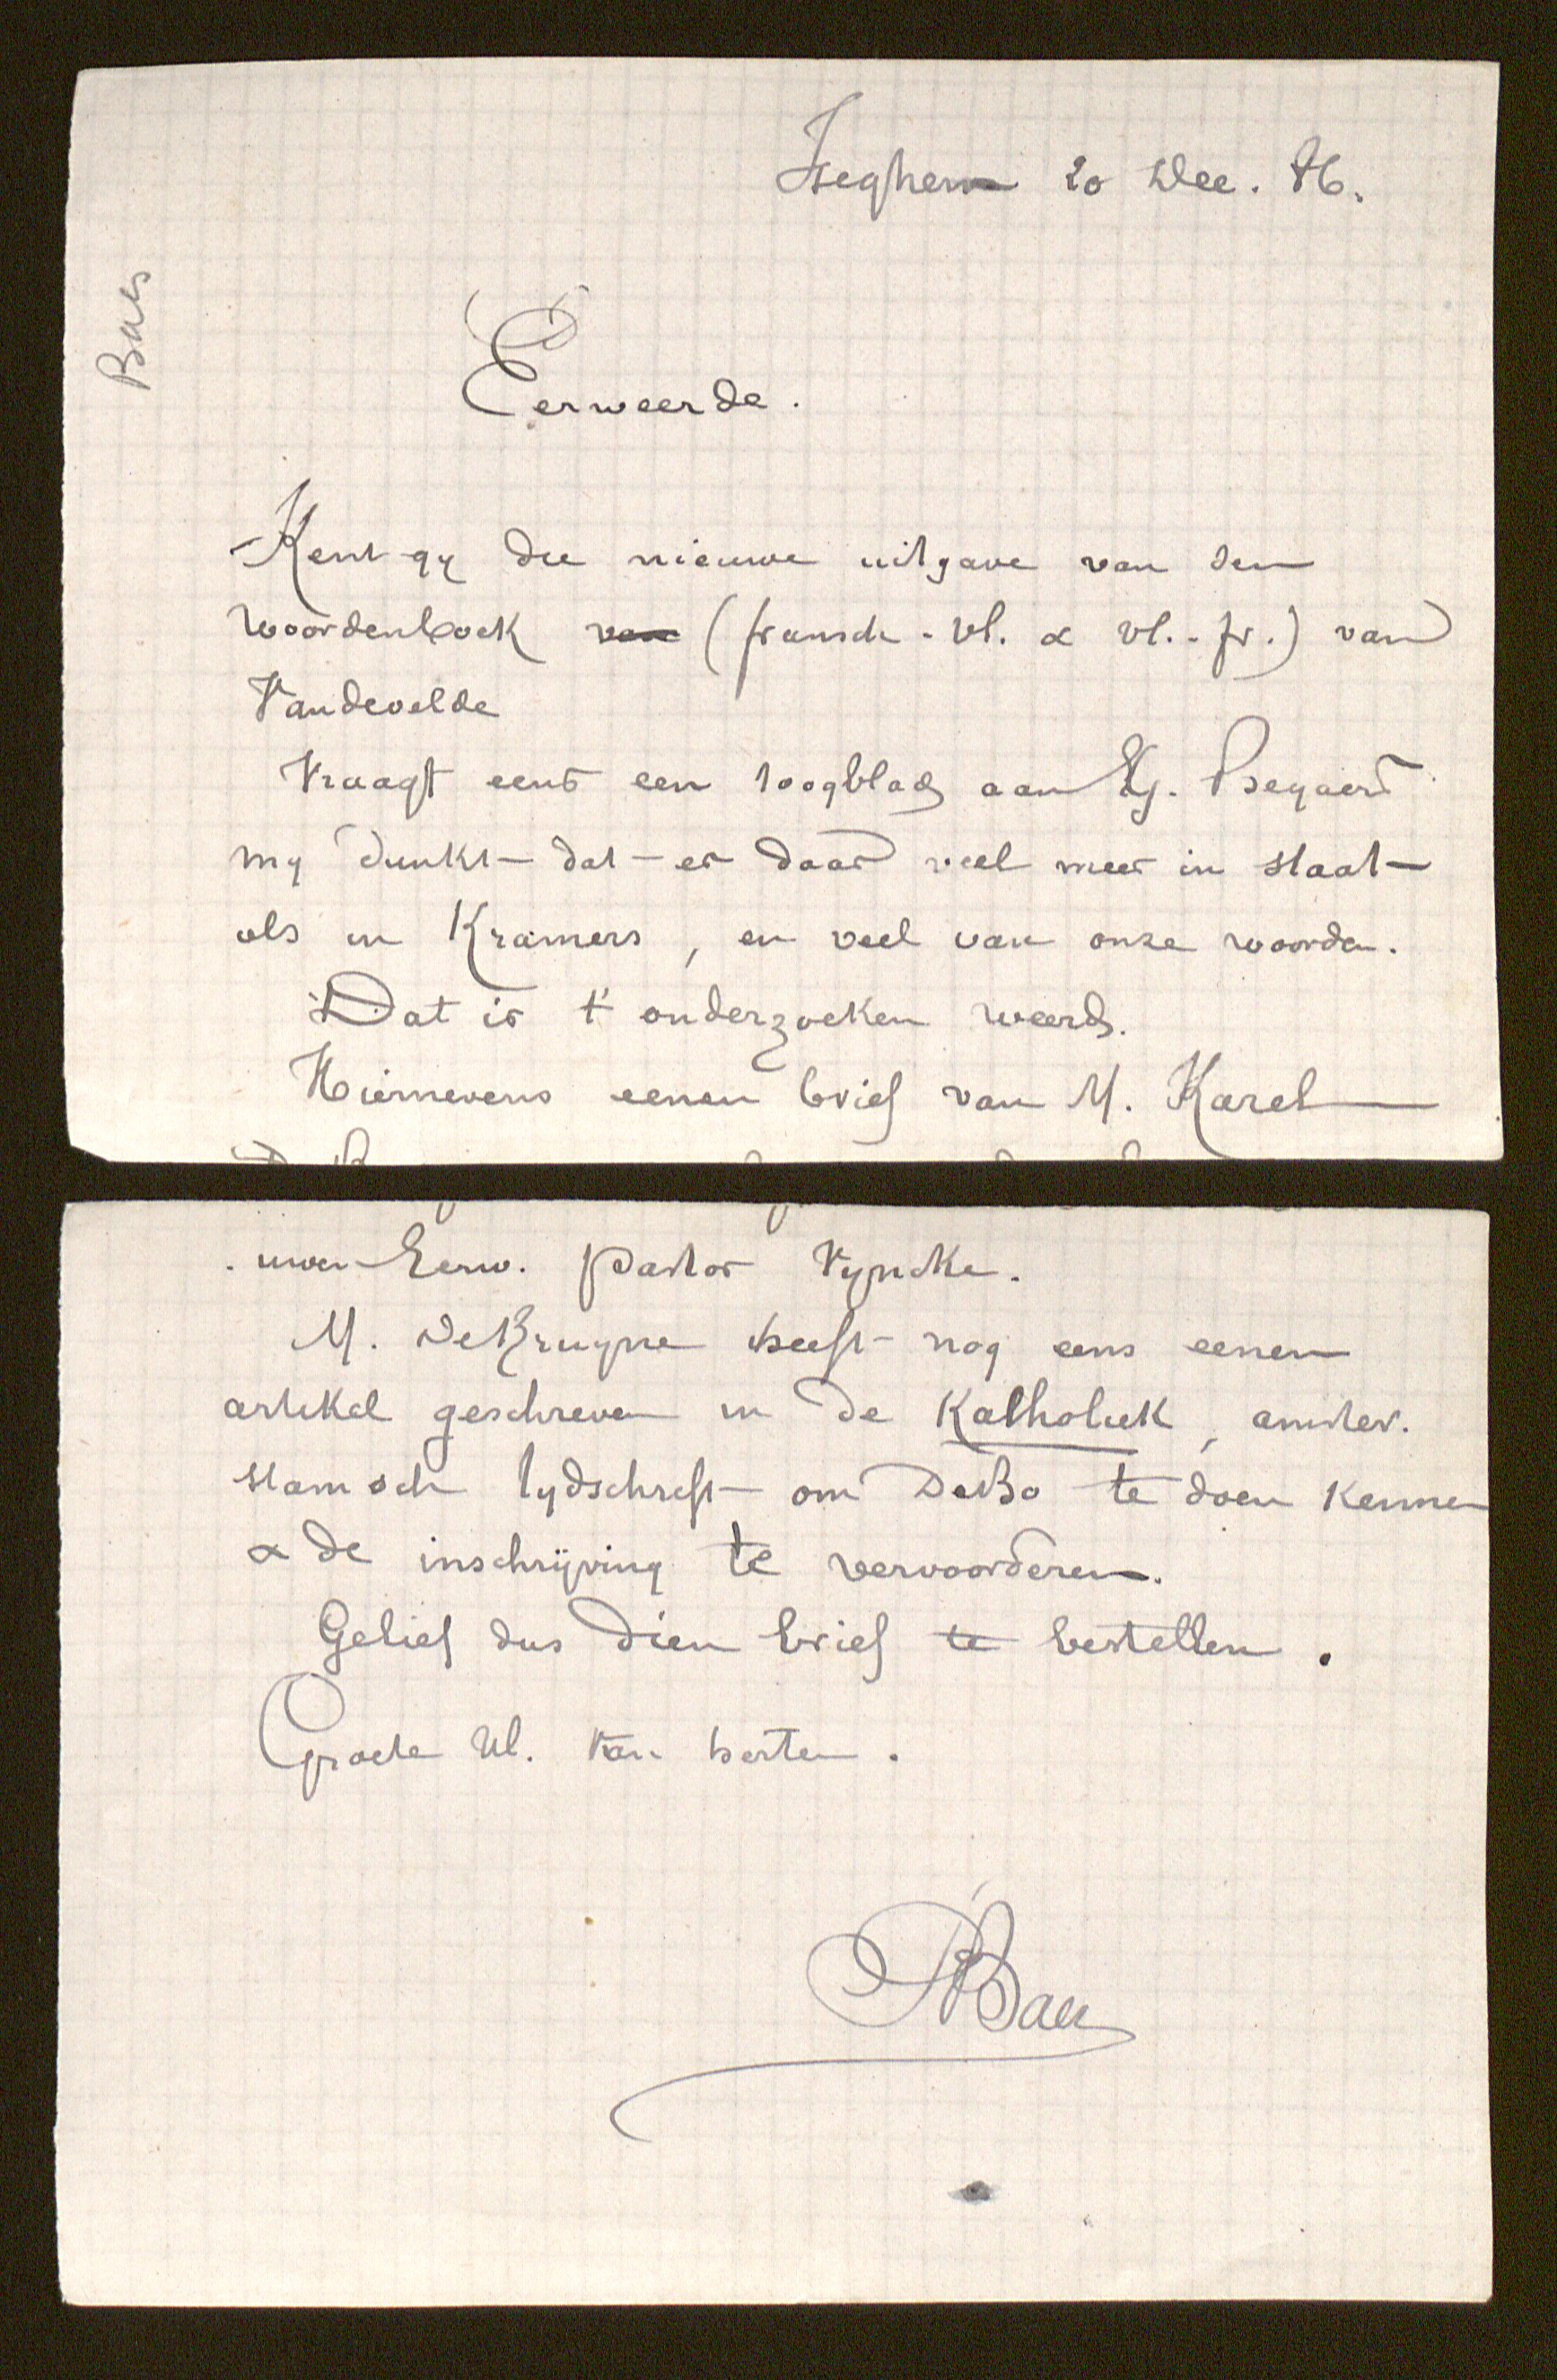 Iseghem 20 Dec. 86.
Baes
Eerweerde.
Kent gy die nieuwe uitgave van den
woordenboek van (fransch-vl. & vl.-fr.) van
Vandevelde
Vraagt eens een toogblad aan Eg. Beyaert
my dunkt dat er daar veel meer in staat
als in Kramers, en veel van onze woorden.
Dat is t' onderzoeken weerd.
Hiernevens eenen brief van M. Karel
uwen Eerw. Pastor Vyncke.
M. DeBruyne heeft nog eens eenen
artikel geschreven in de Katholiek, amster-
stamsch tydschrift om DeBo te doen kennen
& de inschrijving te vervoorderen.
Gelief dus dien brief te bestellen.
Groete Ul. van herten.
Baes